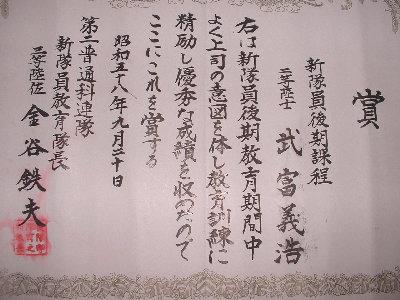 賞
新隊員後期課程
二等陸士 武富義浩
右は新隊員後期教育期間中
よく上司の意図を体し教育訓練に
精励し優秀な成績を収めたので
ここにこれを賞する
昭和五十八年九月二十日
第二普通科連隊
新隊員教育隊長
三等陸佐 金谷鉄夫